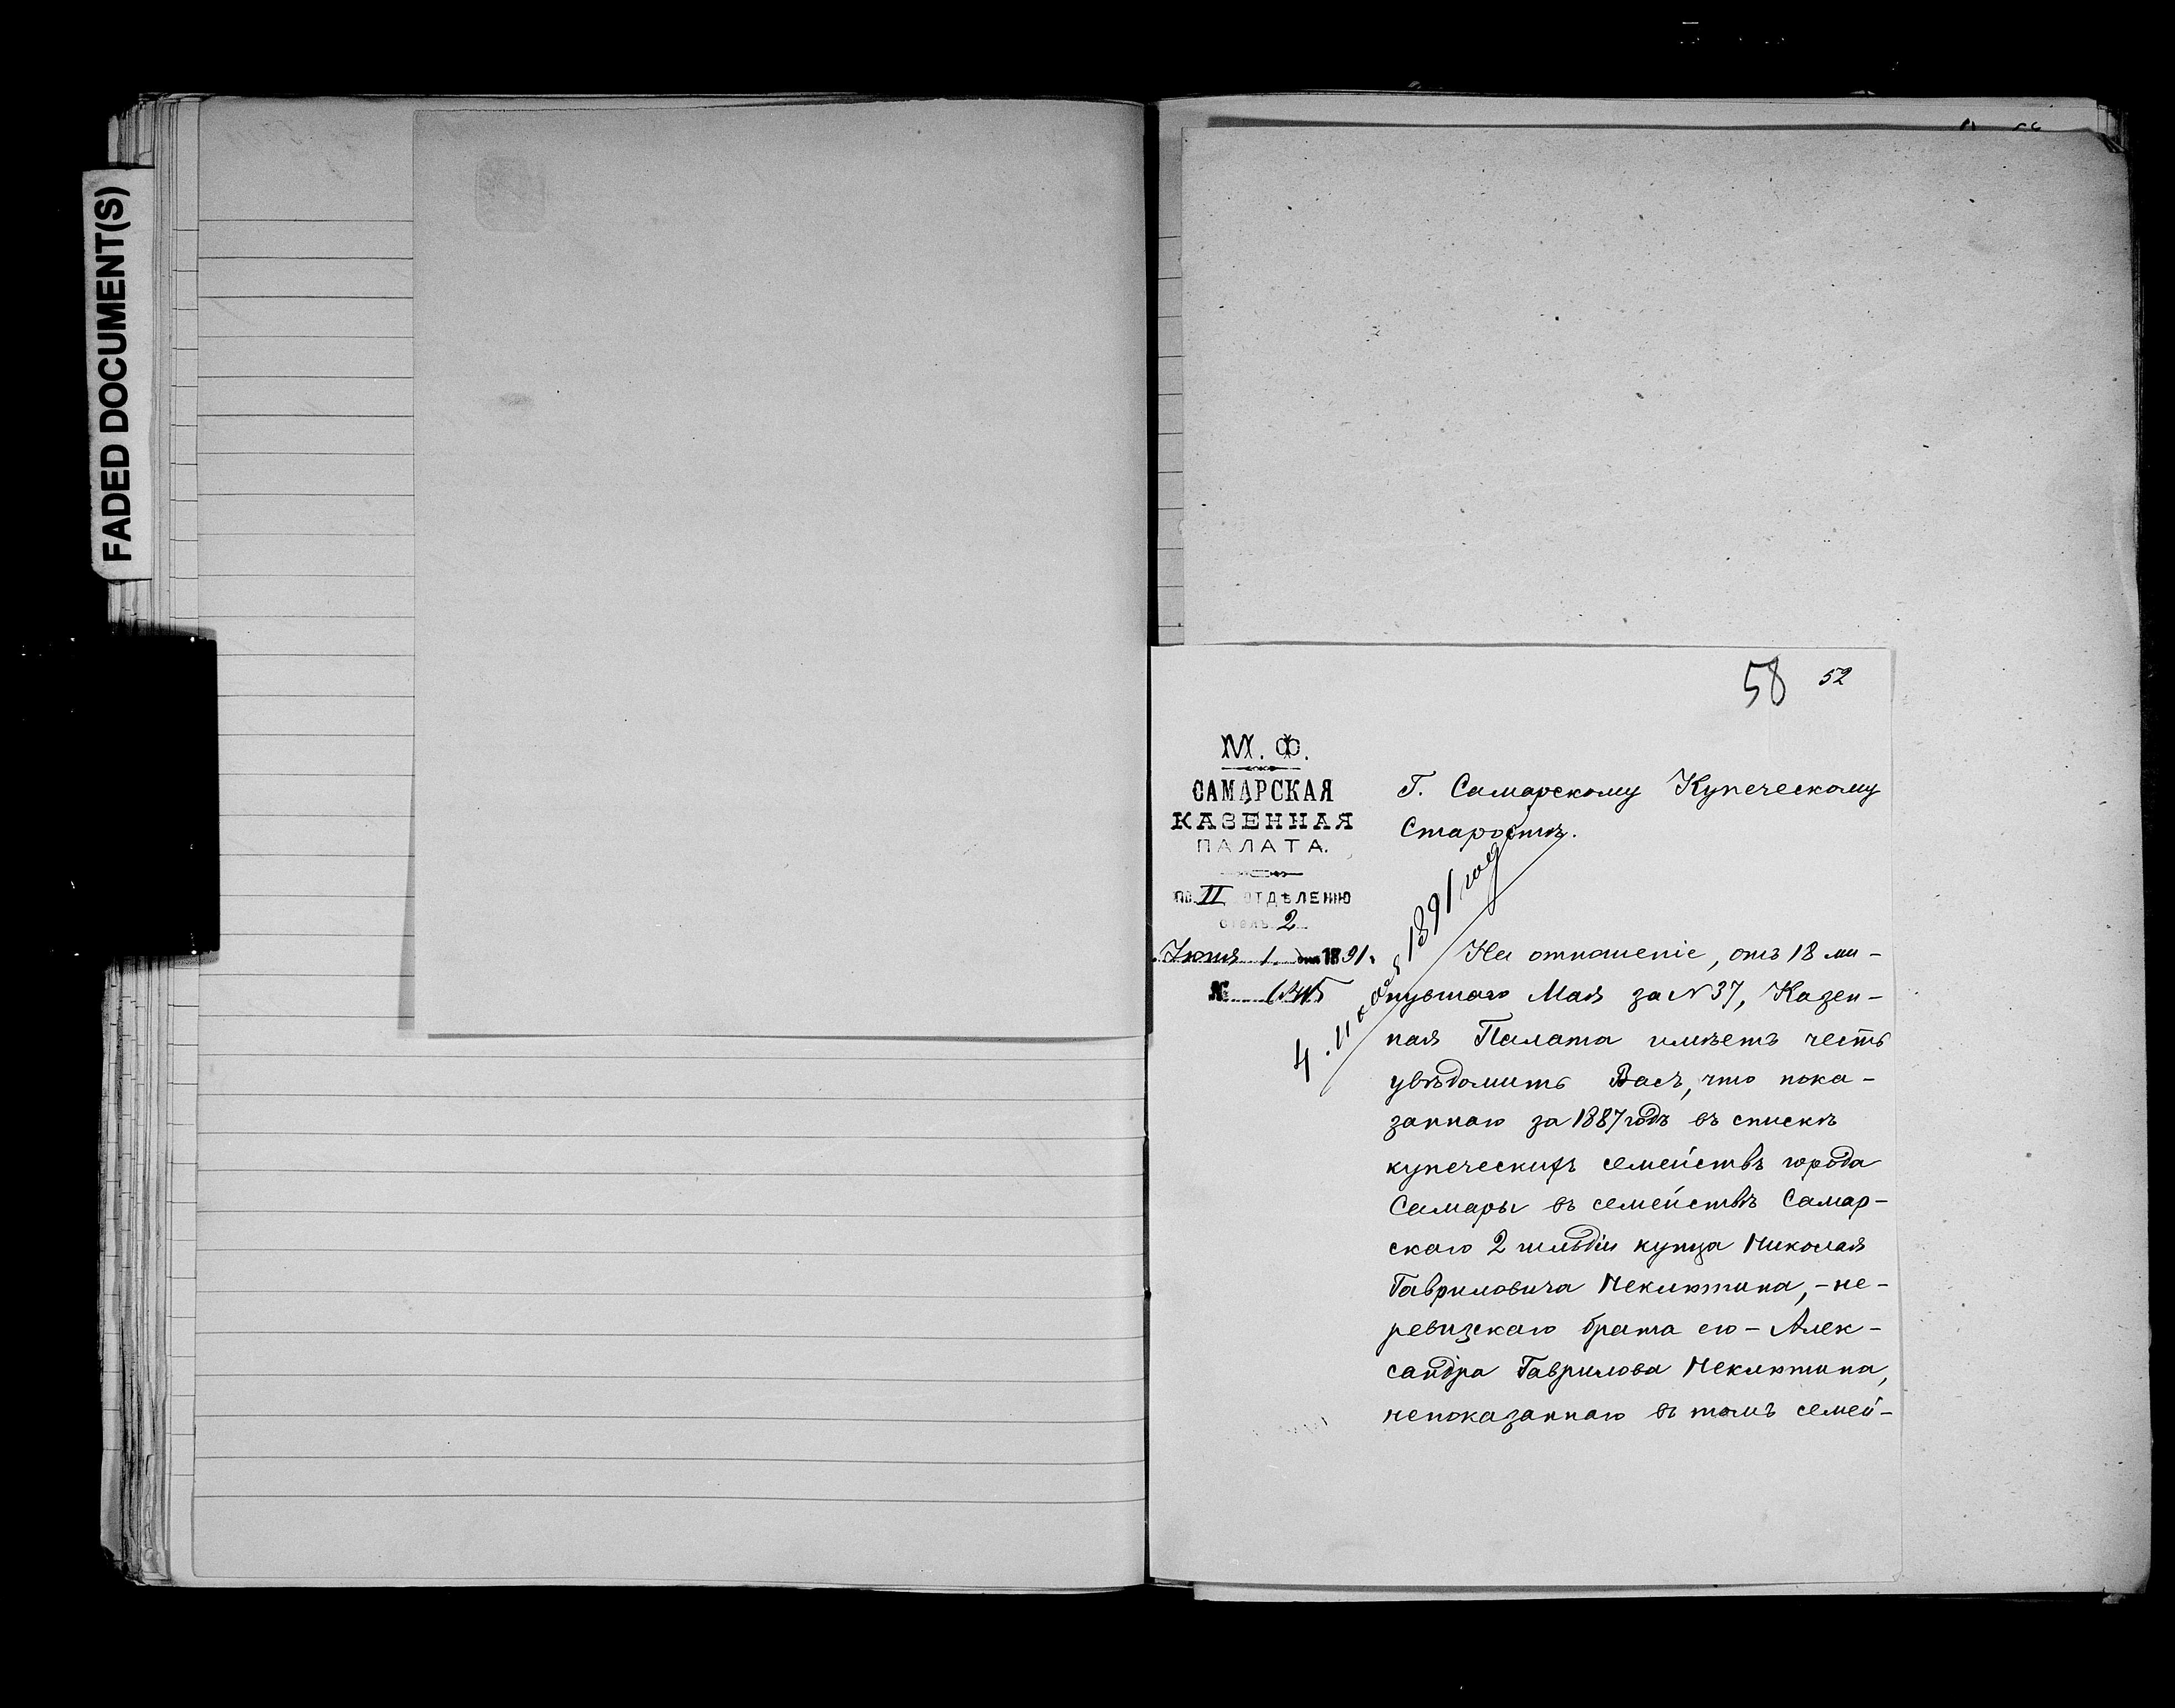 FADED DOCUMENT(S)
58 52
М. Ф.
САМАРСКАЯ
КАЗЕННАЯ
ПАЛАТА.
ПО II ОТДѢЛЕНІЮ
столъ 2
Іюня 1 дня 1891.
№
Г. Самарскому Купеческому
Старостѣ.
4 1891 году
На отношеніе, отъ 18 ми-
нувшаго Мая за № 37, Казен-
ная Палата имѣетъ честь
увѣдомить Васъ, что пока-
заннаго за 1887 годъ въ спискѣ
купеческихъ семействъ города
Самары въ семействѣ Самар-
скаго 2 гильдіи купца Николая
Гавриловича Неклютина, - не-
ревизскаго брата его - Алек-
сандра Гаврилова Неклютина,
непоказаннаго въ томъ семей-